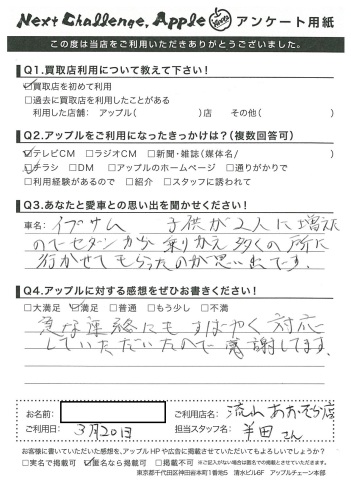 Next Challenge, Apple アンケート用紙
この度は当店をご利用いただきありがとうございました。
Q1.買取店利用について教えて下さい!
☑買取店を初めて利用
□過去に買取店を利用したことがある
利用した店舗: アップル( )店 その他( )
Q2.アップルをご利用になったきっかけは?(複数回答可)
☑テレビCM □ラジオCM □新聞・雑誌(媒体名/ )
☑チラシ □DM □アップルのホームページ □通りがかりで
□利用経験があるので □紹介 □スタッフに誘われて
Q3.あなたと愛車との思い出を聞かせください!
車名: イプサム 子供が2人に増えた
のでセダンから乗りかえ多くの所に
行かせてもらったのが思い出です。
Q4.アップルに対する感想をぜひお書きください!
□大満足 ☑満足 □普通 □もう少し □不満
急な連絡にもすばやく対応
していただいたので感謝してます。
お名前: ご利用店名: 流山おおぞら店
ご利用日: 3月20日 担当スタッフ名: 半田さん
お客様に書いていただいた感想を、アップルHPや広告に掲載させていただいてもよろしいでしょうか?
□実名で掲載可 ☑匿名なら掲載可 □掲載不可 ※ご記入がない場合は匿名での掲載とさせていただきます。
東京都千代田区神田岩本町1番地5 清水ビル6F アップルチェーン本部